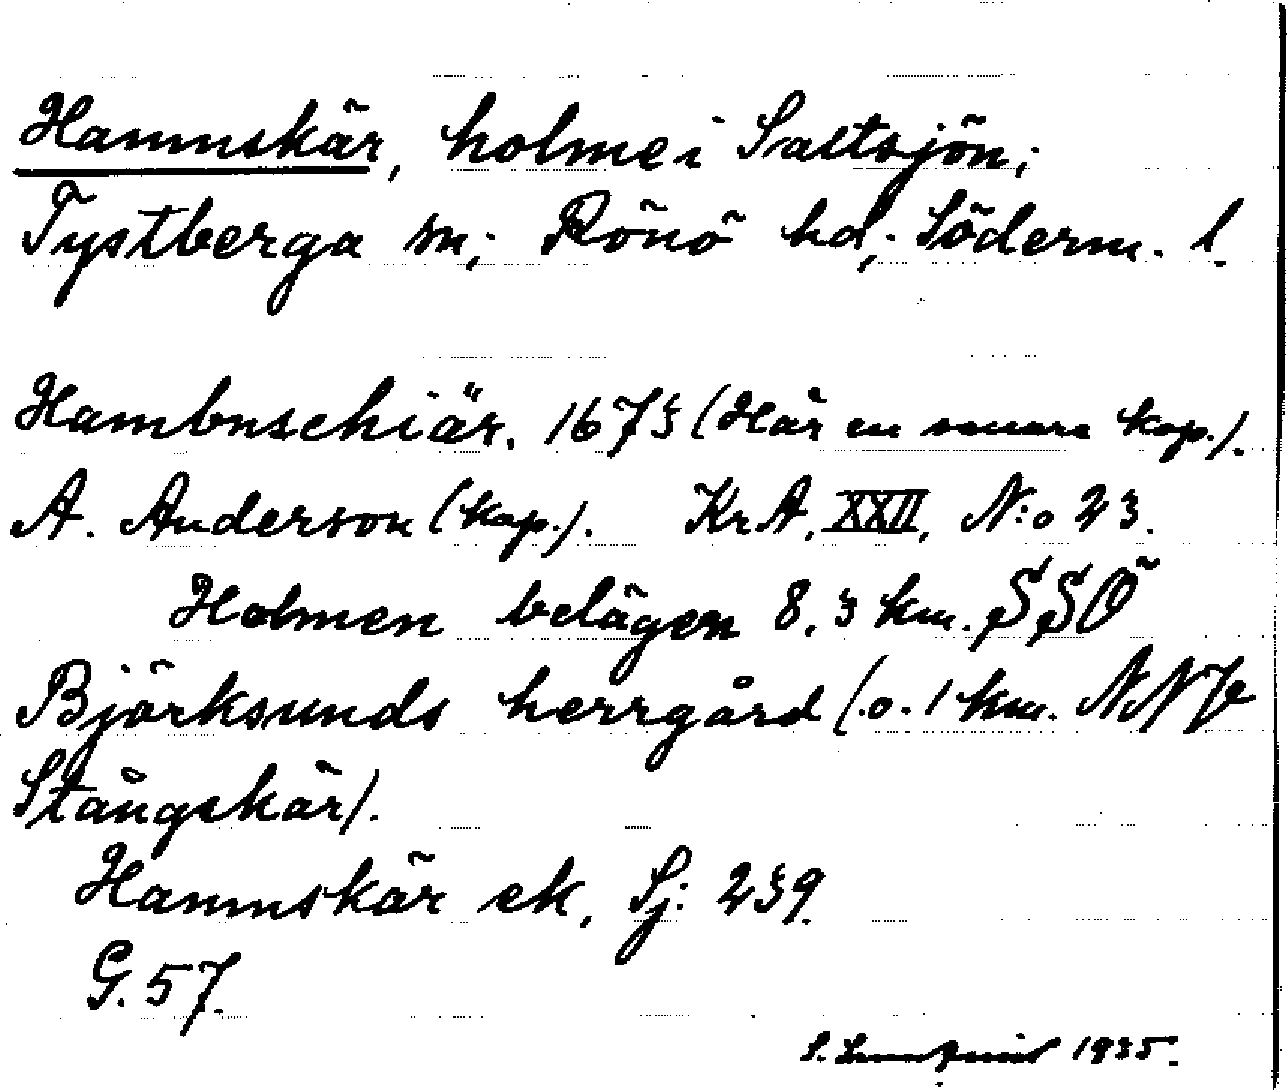 Hamnskär, holme i Saltsjön;
Tystberga sn; Rönö hd; Söderm. l.
Hambnschiär. 1673 (Här en senare kop.).
A. Anderson (kop.). Kr A, XXII, N:o 23.
Holmen belägen 8,3 km. SSÖ
Björksunds herrgård (0.1 km. NNV
Stångskär).
Hamnskär ek, Sj: 239.
G. 57.
S. 1935.